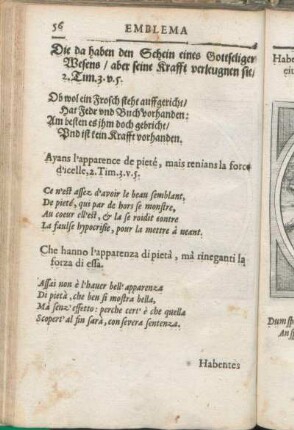 56 EMBLEMA
Die da haben den Schein eines Gottseligen
Wesens / aber seine Krafft verleugnen sie/
2. Tim. 3. v. 5.
Ob wol ein Frosch steht auffgericht/
Hat Fedr vnd Buch vorhanden:
Am besten es jhm doch gebricht/
Vnd ist kein Krafft vorhanden.
Ayans l'apparence de pieté, mais renians la force
d'icelle, 2. Tim. 3. v. 5.
Ce n'est assez d'avoir le beau semblant,
De pieté, qui par de hors se monstre,
Au coeur ell'est, & la se roidit contre
La faulse hypocrisie, pour la mettre à neant.
Che hanno l'apparenza di pietà, mà rineganti la
forza di essa.
Assai non è l'haver bell' apparenza
Di pietà, che ben si mostra bella,
Mà senz' effetto: perche cert' è che quella
Scopert' al fin sarà, con severa sentenza.
Habentes
Habe
Dum sp
An ss